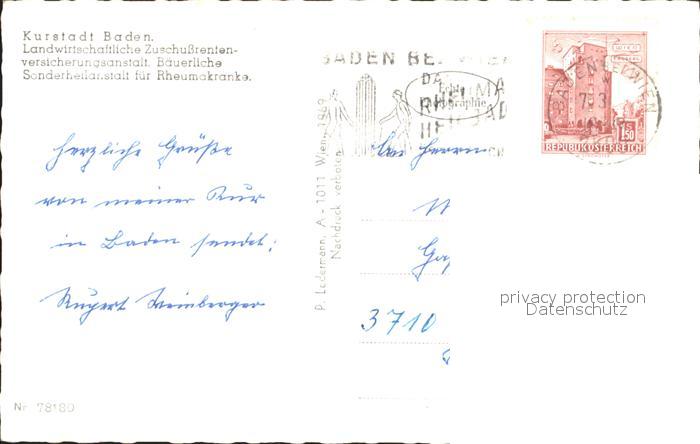 Kurstadt Baden.
Landwirtschaftliche Zuschußrenten-
versicherungsanstalt. Bäuerliche
Sonderheilanstalt für Rheumakranke.
herzliche Grüße
von meiner Kur
in Baden sendet:
Rupert Weinberger
Nr. 78180
P. Ledermann, A - 1011 Wien, 1969
Nachdruck verboten
Echte
Photographie
BADEN BEI WIEN
DAS
RHEUMA
HEILBAD
An Herrn
3710
BADEN BEI WIEN
1.50
REPUBLIK ÖSTERREICH
privacy protection
Datenschutz